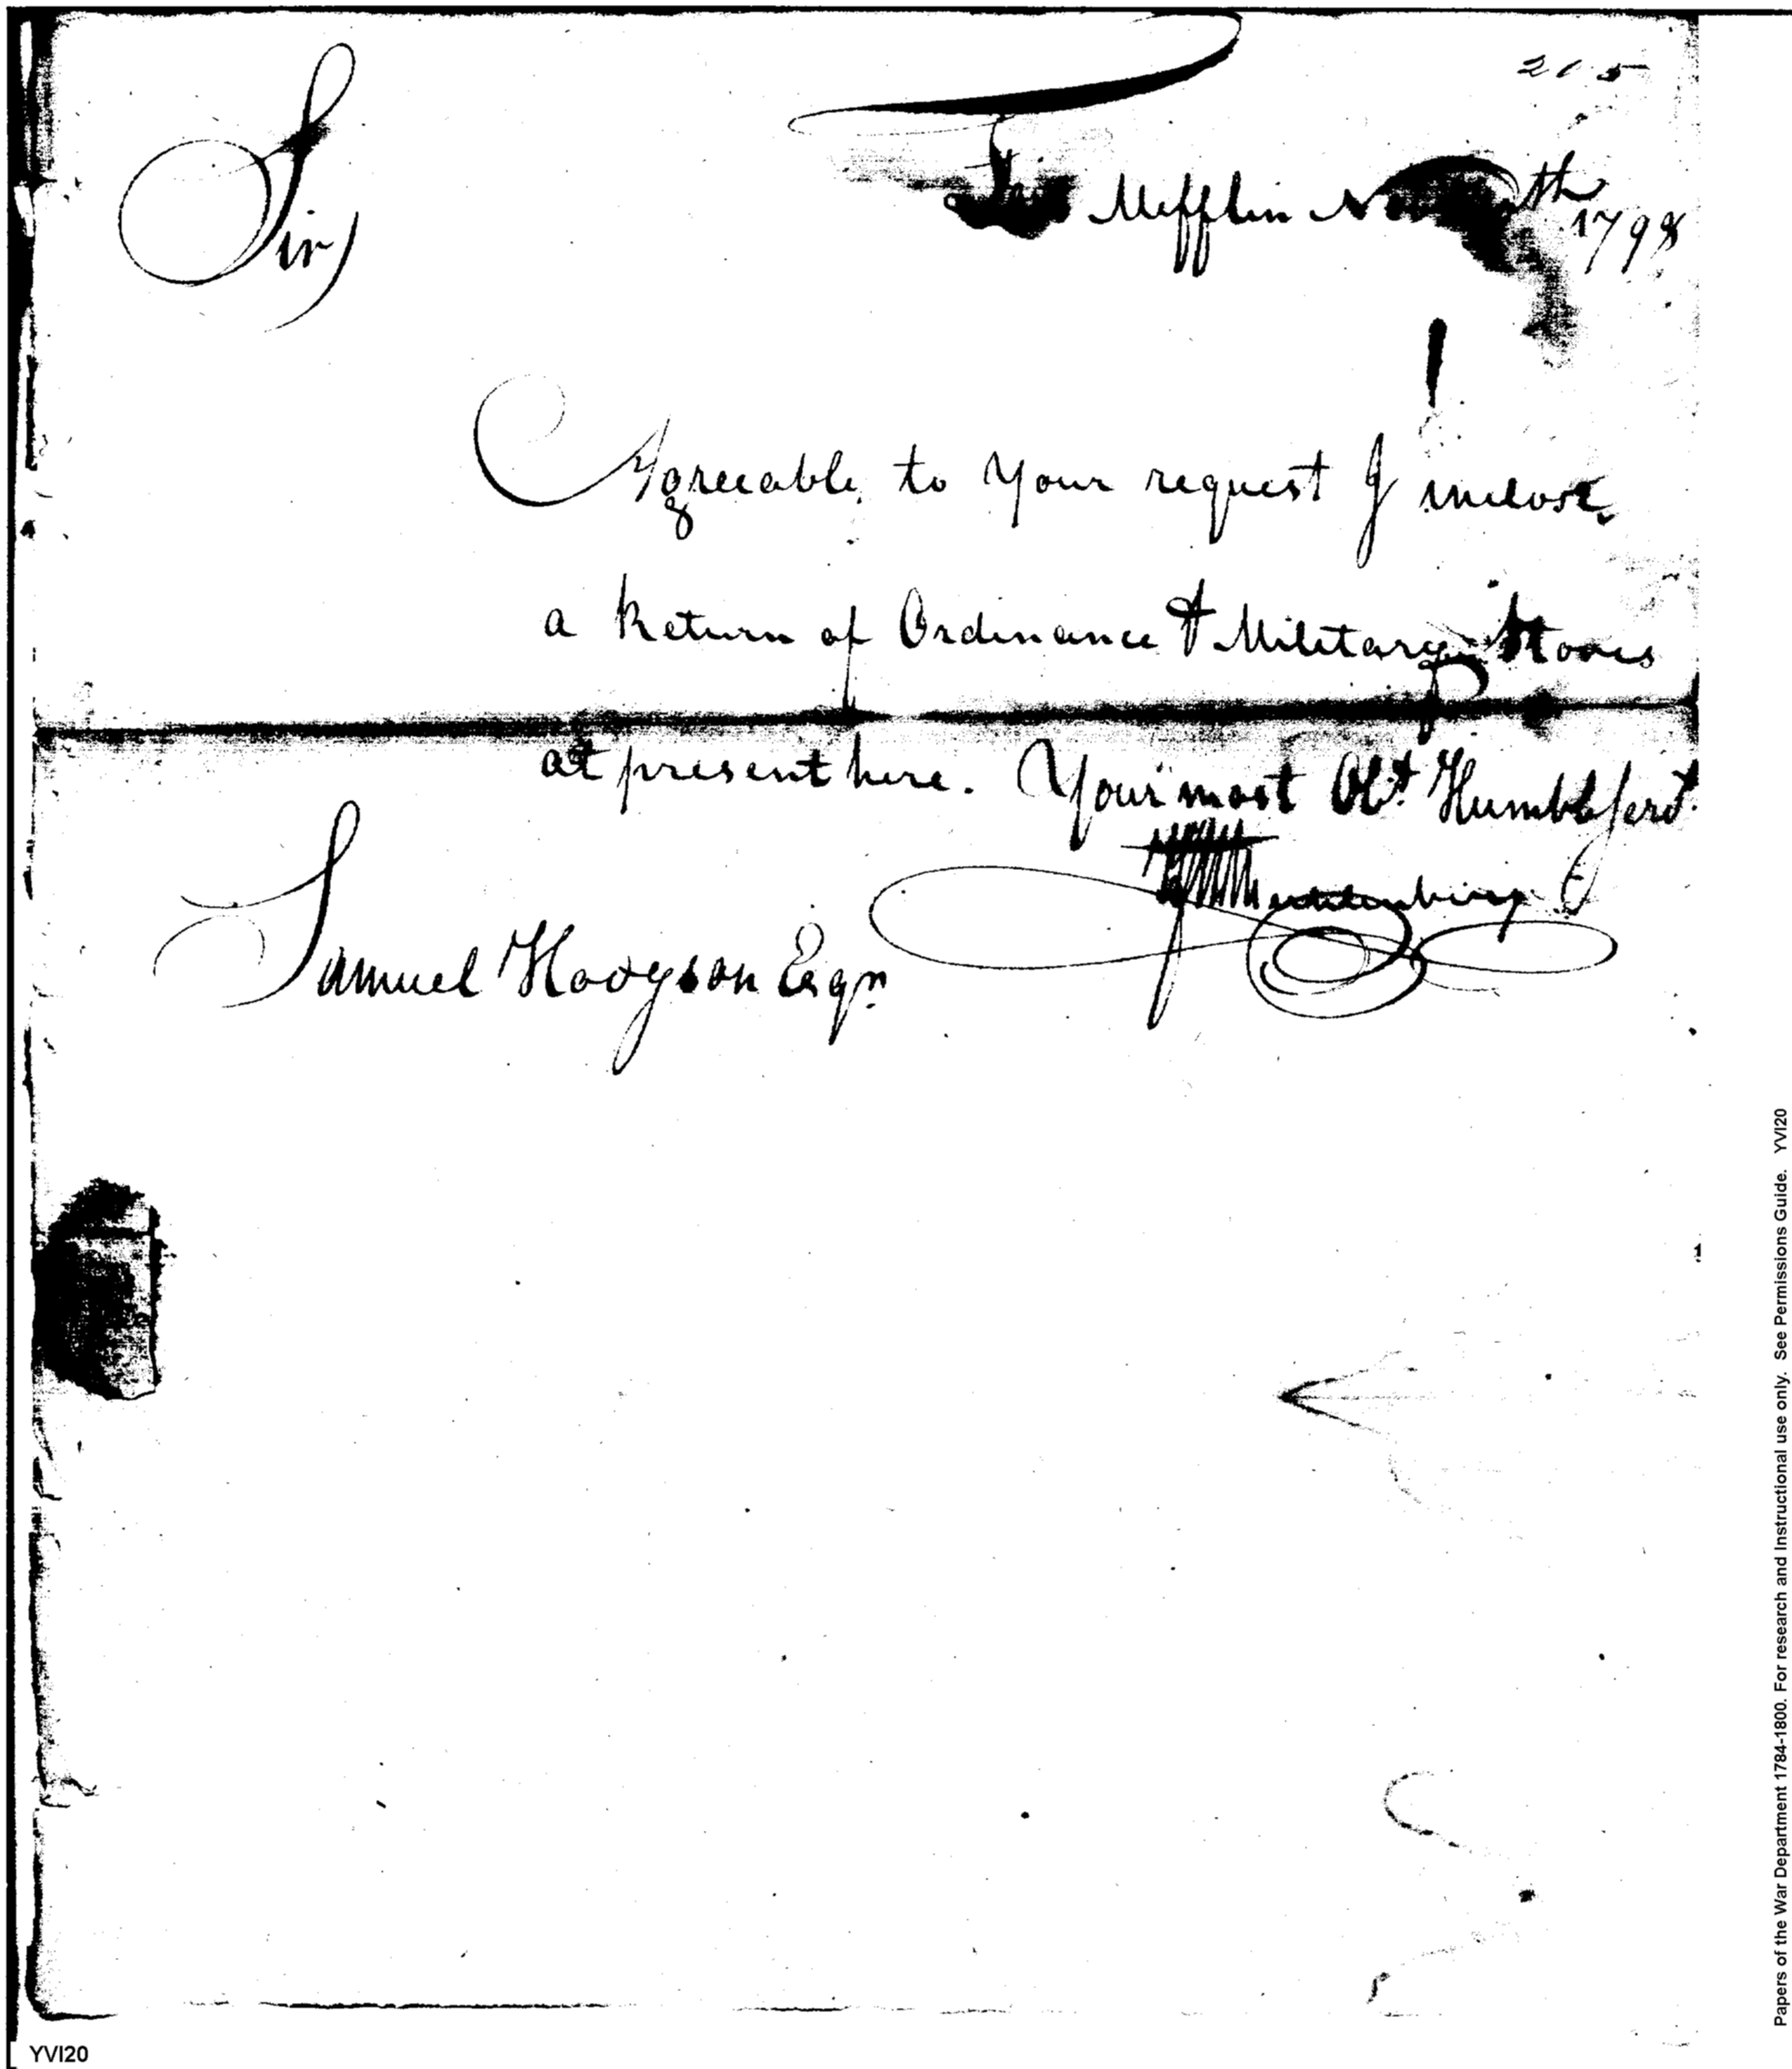 215
Sir,
Mifflin
th
1798
Agreeable to Your request I inclose
a Return of Ordinance & Military Stores
at present here. Your most Obt. Humble Servt.
Muhlenburg
Samuel Hodgson Esqr.
Papers of the War Department 1784-1800. For research and Instructional use only. See Permissions Guide. YVI20
YVI20